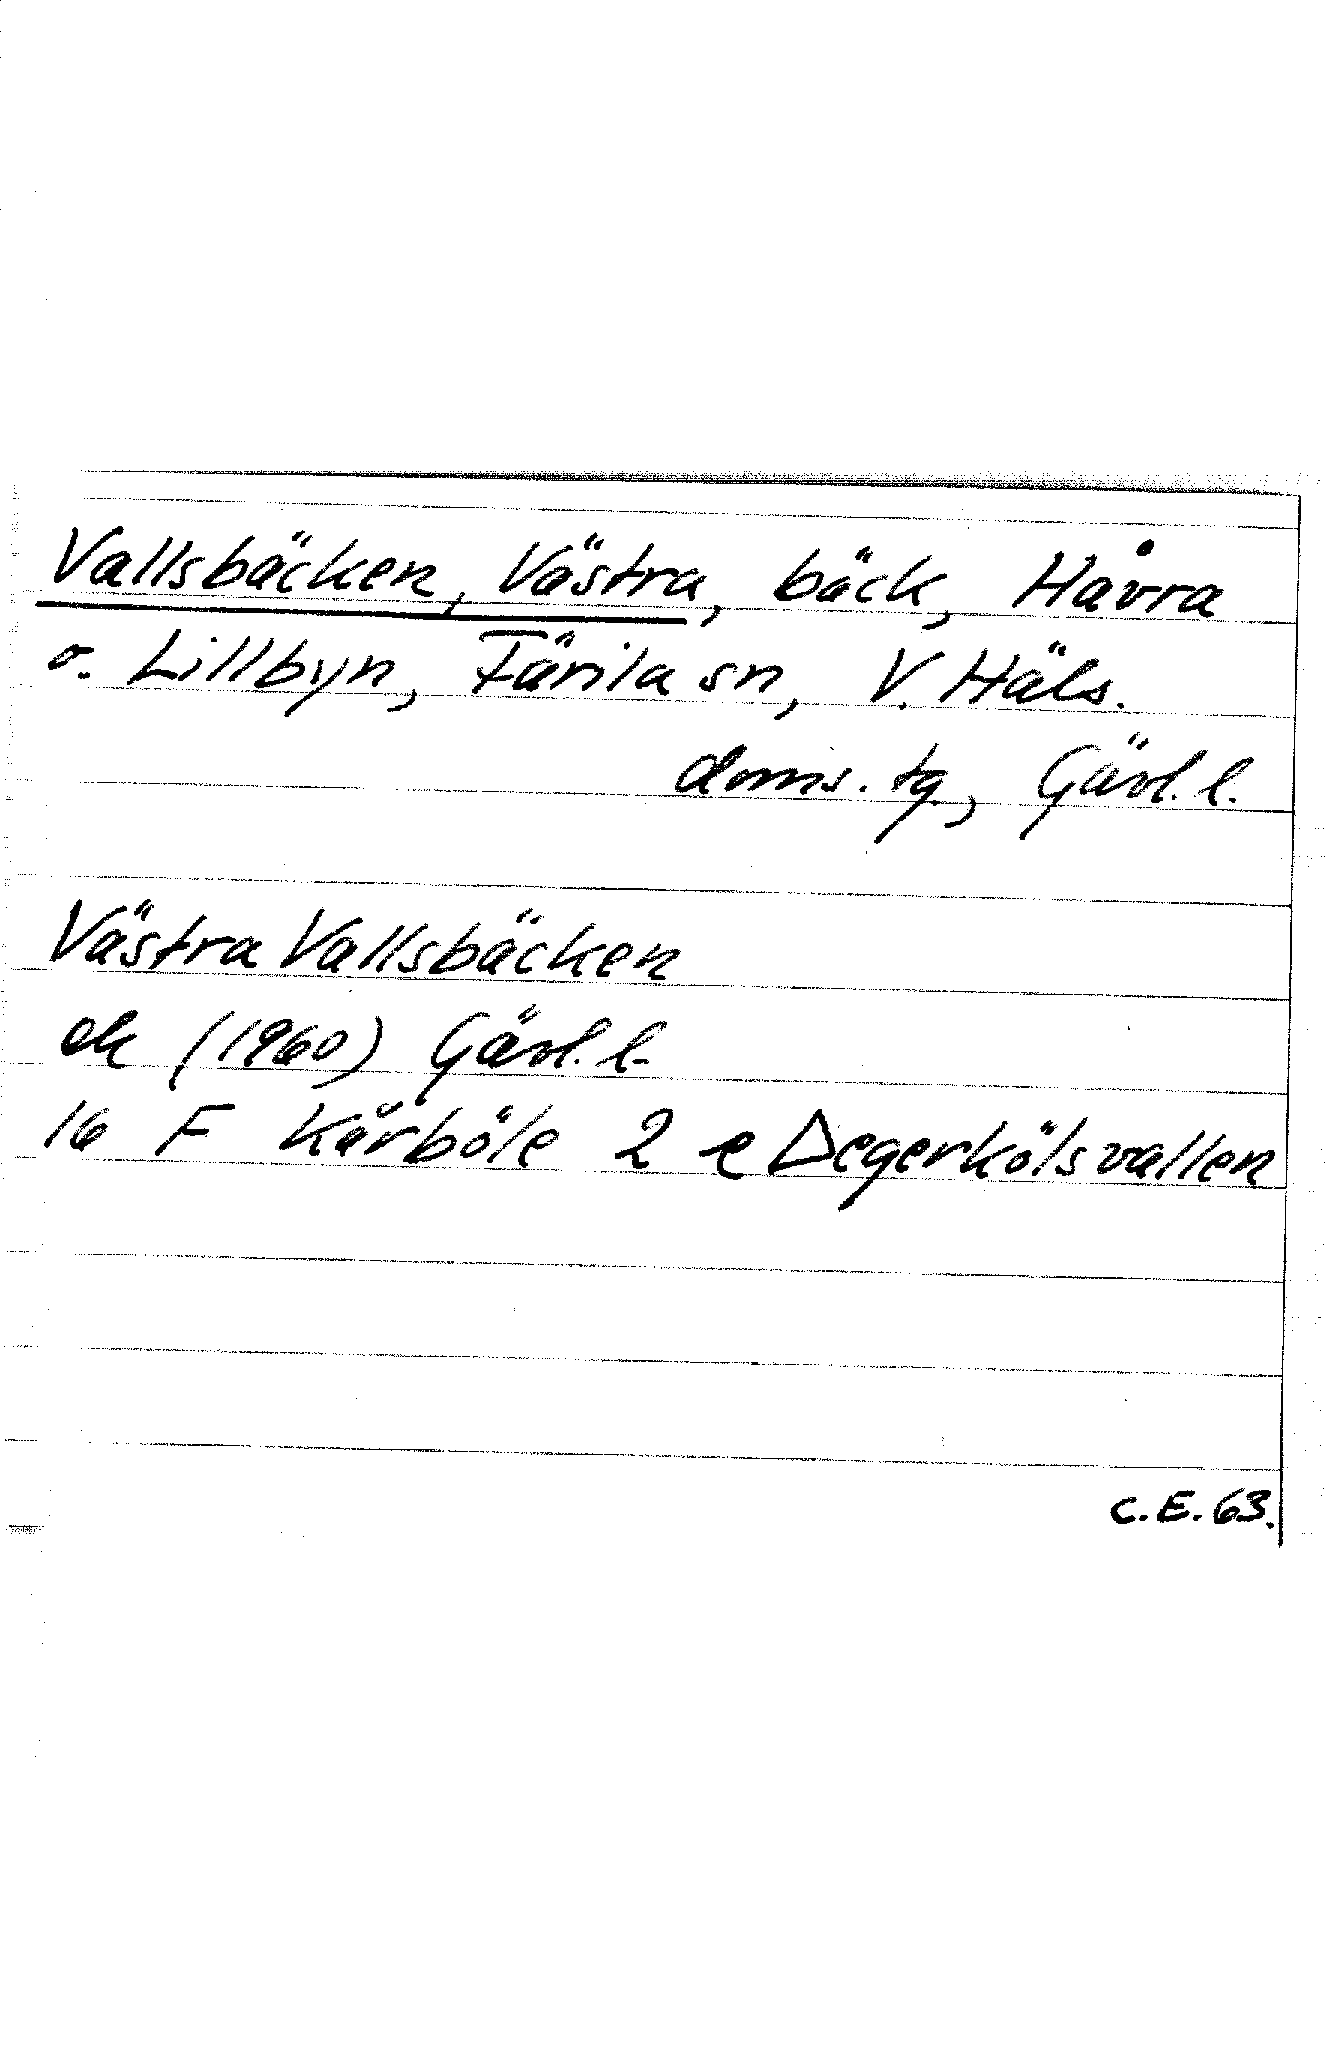 Vallsbäcken, Västra, bäck, Håvra
o. Lillbyn, Färila sn, V. Häls.
doms. tg, Gävl. l.
Västra Vallsbäcken
ek (1960) Gävl. l.
16 F Kårböle 2 e Degerkölsvallen
C.E. 63.